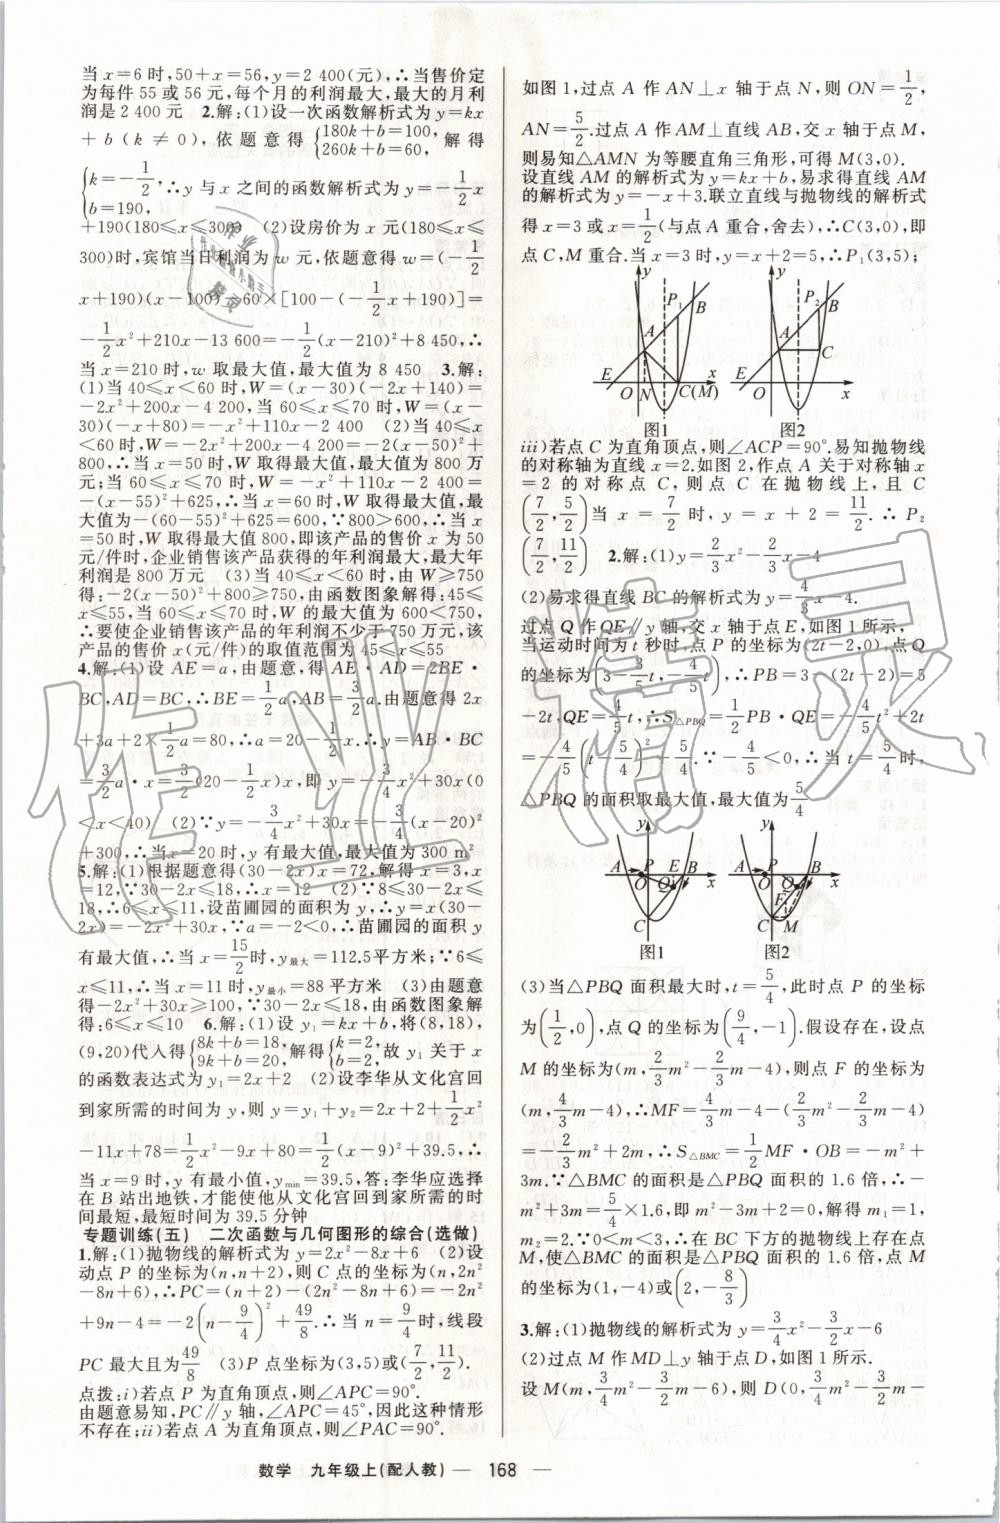 当x=6时,50+x=56,y=2 400(元),∴当售价定
为每件55或56元,每个月的利润最大,最大的月利
润是2 400元 2.解:(1)设一次函数解析式为y=kx
+b(k≠0),依题意得{180k+b=100, 260k+b=60, 解得
{k=-1/2, b=190, ∴y与x之间的函数解析式为y=-1/2x
+190(180≤x≤300) (2)设房价为x元(180≤x≤
300)时,宾馆当日利润为w元,依题意得w=(-1/2
x+190)(x-100)-60×[100-(-1/2x+190)]=
-1/2x²+210x-13 600=-1/2(x-210)²+8 450,∴
当x=210时,w取最大值,最大值为8 450 3.解:
(1)当40≤x<60时,W=(x-30)(-2x+140)=
-2x²+200x-4 200,当60≤x≤70时,W=(x-
30)(-x+80)=-x²+110x-2 400 (2)当40≤x
<60时,W=-2x²+200x-4 200=-2(x-50)²+
800,∴当x=50时,W取得最大值,最大值为800万
元;当60≤x≤70时,W=-x²+110x-2 400=
-(x-55)²+625,∴当x=60时,W取得最大值,最
大值为-(60-55)²+625=600,∵800>600,∴当x
=50时,W取得最大值800,即该产品的售价x为50
元/件时,企业销售该产品获得的年利润最大,最大年
利润是800万元 (3)当40≤x<60时,由W≥750
得:-2(x-50)²+800≥750,由函数图象解得:45≤
x≤55,当60≤x≤70时,W的最大值为600<750,
∴要使企业销售该产品的年利润不少于750万元,该
产品的售价x(元/件)的取值范围为45≤x≤55
4.解:(1)设AE=a,由题意,得AE·AD=2BE·
BC,AD=BC,∴BE=1/2a,AB=3/2a.由题意得2x
+3a+2×1/2a=80,∴a=20-1/2x.∴y=AB·BC
=3/2a·x=3/2(20-1/2x)x,即y=-3/4x²+30x(0
<x<40) (2)∵y=-3/4x²+30x=-3/4(x-20)²
+300,∴当x=20时,y有最大值,最大值为300 m²
5.解:(1)根据题意得(30-2x)x=72,解得x=3,x
=12,∵30-2x≤18,∴x=12 (2)∵8≤30-2x≤
18,∴6≤x≤11,设苗圃园的面积为y,∴y=x(30-
2x)=-2x²+30x,∵a=-2<0,∴苗圃园的面积y
有最大值,∴当x=15/2时,y最大=112.5平方米;∵6≤
x≤11,∴当x=11时,y最小=88平方米 (3)由题意
得-2x²+30x≥100,∵30-2x≤18,由函数图象解
得:6≤x≤10 6.解:(1)设y₁=kx+b,将(8,18),
(9,20)代入得{8k+b=18, 9k+b=20, 解得{k=2, b=2, 故y₁关于x
的函数表达式为y₁=2x+2 (2)设李华从文化宫回
到家所需的时间为y,则y=y₁+y₂=2x+2+1/2x²
-11x+78=1/2x²-9x+80=1/2(x-9)²+39.5,∴
当x=9时,y有最小值,ymin=39.5,答:李华应选择
在B站出地铁,才能使他从文化宫回到家所需的时
间最短,最短时间为39.5分钟
专题训练(五) 二次函数与几何图形的综合(选做)
1.解:(1)抛物线的解析式为y=2x²-8x+6 (2)设
动点P的坐标为(n,n+2),则C点的坐标为(n,2n²
-8n+6),∴PC=(n+2)-(2n²-8n+6)=-2n²
+9n-4=-2(n-9/4)²+49/8.∴当n=9/4时,线段
PC最大且为49/8 (3)P点坐标为(3,5)或(7/2,11/2).
点拨:i)若点P为直角顶点,则∠APC=90°.
由题意易知,PC∥y轴,∠APC=45°,因此这种情形
不存在;ii)若点A为直角顶点,则∠PAC=90°.
如图1,过点A作AN⊥x轴于点N,则ON=1/2,
AN=5/2.过点A作AM⊥直线AB,交x轴于点M,
则易知△AMN为等腰直角三角形,可得M(3,0).
设直线AM的解析式为y=kx+b,易求得直线AM
的解析式为y=-x+3.联立直线与抛物线的解析式
得x=3或x=1/2(与点A重合,舍去),∴C(3,0),即
点C,M重合.当x=3时,y=x+2=5,∴P₁(3,5);
y P₁ B A E O N C(M) x
y P₂ B A C E O x
图1 图2
iii)若点C为直角顶点,则∠ACP=90°.易知抛物线
的对称轴为直线x=2.如图2,作点A关于对称轴x
=2的对称点C,则点C在抛物线上,且C
(7/2,5/2)当x=7/2时,y=x+2=11/2.∴P₂
(7/2,11/2) 2.解:(1)y=2/3x²-2/3x-4
(2)易求得直线BC的解析式为y=4/3x-4.
过点Q作QE∥y轴,交x轴于点E,如图1所示,
当运动时间为t秒时,点P的坐标为(2t-2,0),点Q
的坐标为(3-3/5t,-4/5t),∴PB=3-(2t-2)=5
-2t,QE=4/5t,∴S△PBQ=1/2PB·QE=-4/5t²+2t
=-4/5(t-5/4)²+5/4.∵-4/5<0,∴当t=5/4时,
△PBQ的面积取最大值,最大值为5/4
y A P E B O Q x C
y A P B O Q x F C M
图1 图2
(3)当△PBQ面积最大时,t=5/4,此时点P的坐标
为(1/2,0),点Q的坐标为(9/4,-1).假设存在,设点
M的坐标为(m,2/3m²-2/3m-4),则点F的坐标为
(m,4/3m-4),∴MF=4/3m-4-(2/3m²-2/3m-4)
=-2/3m²+2m,∴S△BMC=1/2MF·OB=-m²+
3m.∵△BMC的面积是△PBQ面积的1.6倍,∴-
m²+3m=5/4×1.6,即m²-3m+2=0,解得m₁=1,
m₂=2.∵0<m<3,∴在BC下方的抛物线上存在点
M,使△BMC的面积是△PBQ面积的1.6倍,点M
的坐标为(1,-4)或(2,-8/3)
3.解:(1)抛物线的解析式为y=3/4x²-3/2x-6
(2)过点M作MD⊥y轴于点D,如图1所示.
设M(m,3/4m²-3/2m-6),则D(0,3/4m²-3/2m-
数学 九年级上(配人教) — 168 —
作业精灵